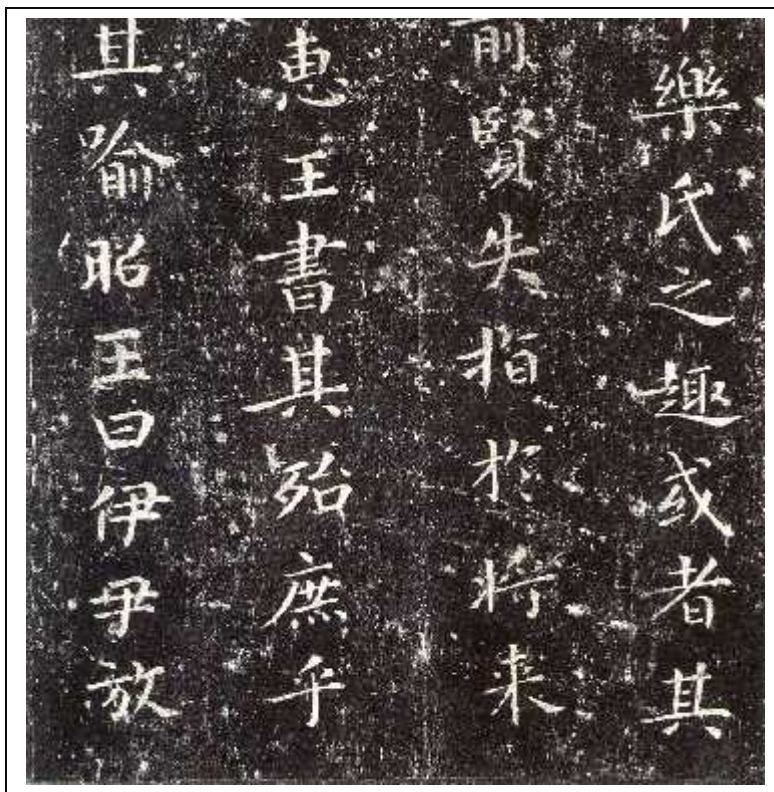 樂氏之趣或者其
前賢失指於將来
惠王書其殆庶乎
其喻昭王曰伊尹放